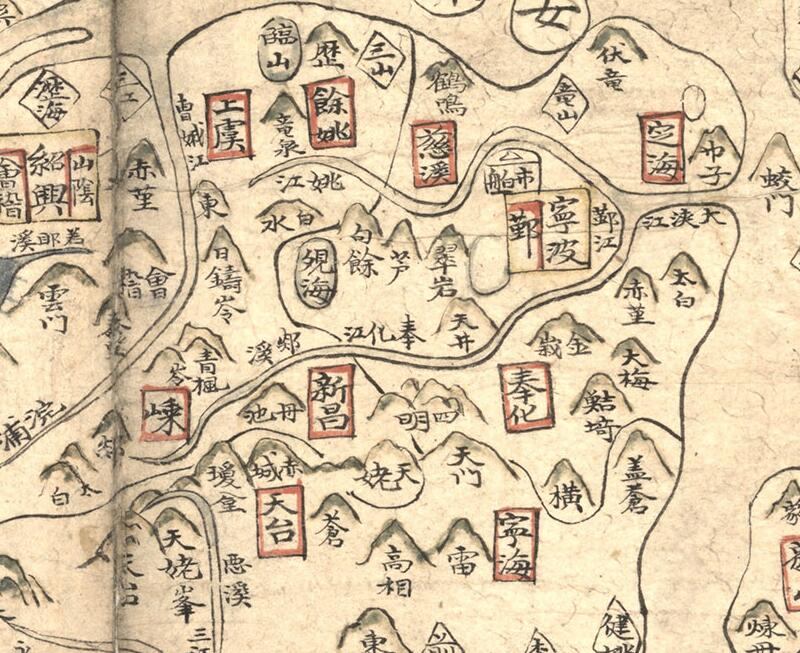 女
臨山
歴
三山
伏竜
瀝海
三江
鶴鳴
竜山
上虞
餘姚
竜泉
慈溪
定海
巾子
蛟門
曹娥江
會稽
紹興
山陰
赤堇
姚江
市舶
東
白水
鄞
寧波
鄞江
大浹江
若耶溪
日鑄岑
覌海
句餘
芦
翠岩
太白
赤堇
雲門
會稽
奉化江
天井
金峩
大梅
剡溪
青楓岑
嵊
丹池
新昌
四明
奉化
鮚埼
浣浦
太白
瓊臺
赤城
天姥
天門
橫
盖蒼
天台
蒼
寧海
天姥峯
天台
惡溪
高相
雷
三江
東
健跳